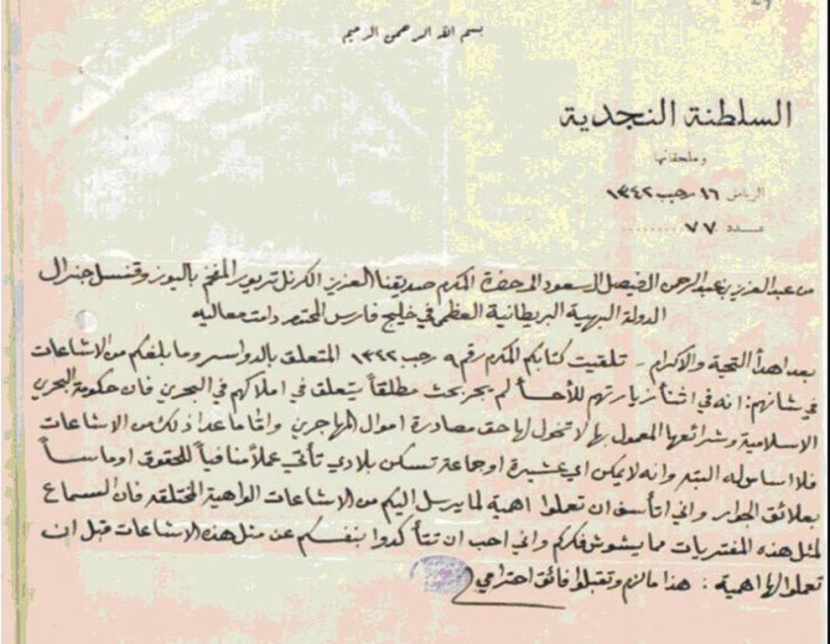 بسم الله الرحمن الرحيم
السلطنة النجدية
وملحقاتها
الرياض ١٦ رجب ١٣٤٢
عدد ٧٧
من عبدالعزيز بن عبدالرحمن الفيصل السعود الى حضرة المكرم صديقنا العزيز الكرنل تريور المفخم باليوز وقنسل جنرال
الدولة البهية البريطانية العظمى في خليج فارس المحترم دامت معاليه
بعد اهدأ التحية والاكرام – تلقيت كتابكم المكرم رقم ٩ رجب ١٣٤٢ المتعلق بالدواسر وما بلغكم من الاشاعات
في شانهم: انه في اثنأ زيارتهم للأحسأ لم يجر بحث مطلقاً يتعلق في املاكهم في البحرين فان حكومة البحرين
الاسلامية وشرائعها المعمول بها لا تخول لها حق مصادرة اموال المهاجرين واما ما عدا ذلك من الاشاعات
فلا اساس له البته وانه لا يمكن اي عشيرة او جماعة تسكن بلادي تأتي عملاً منافياً للحقوق او ماساً
بعلائق الجوار واني اتأسف ان تعطوا اهمية لما يرسل اليكم من الاشاعات الواهية المختلقه فان السماع
لمثل هذه المفتريات مما يشوش فكركم واني احب ان تتأكدوا بنفسكم عن مثل هذه الاشاعات قبل ان
تعطوا لها اهمية : هذا ما لزم وتقبلوا فائق احترامي